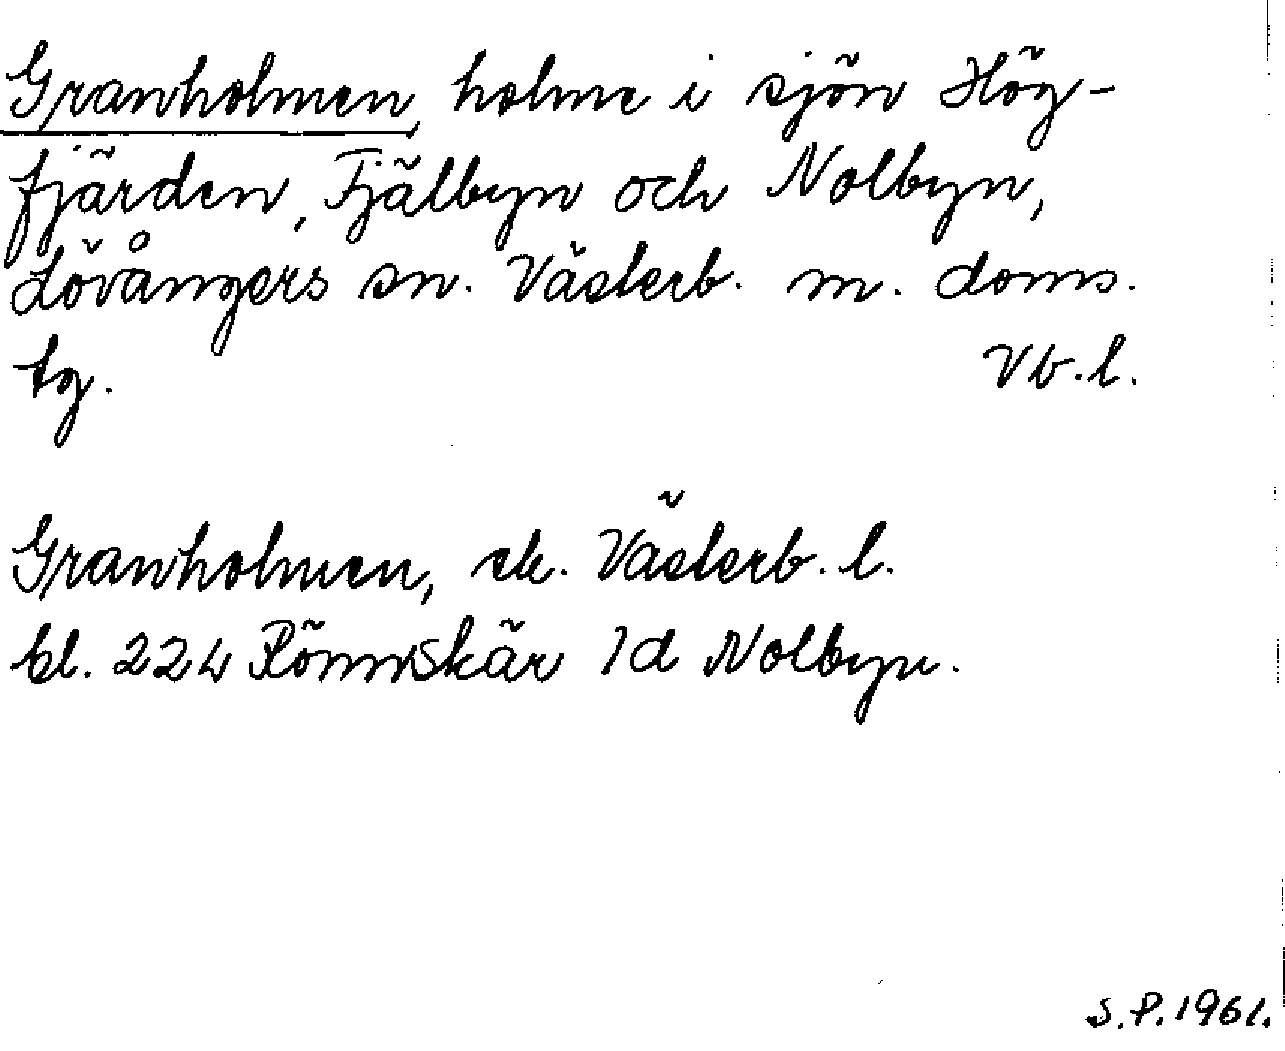 Granholmen, holme i sjön Hög-
fjärden, Fjälbyn och Nolbyn,
Lövångers sn. Västerb. m. doms.
tg. Vb.l.
Granholmen, ek. Västerb. l.
bl. 224 Rönnskär 1d Nolbyn.
S.P. 1961.